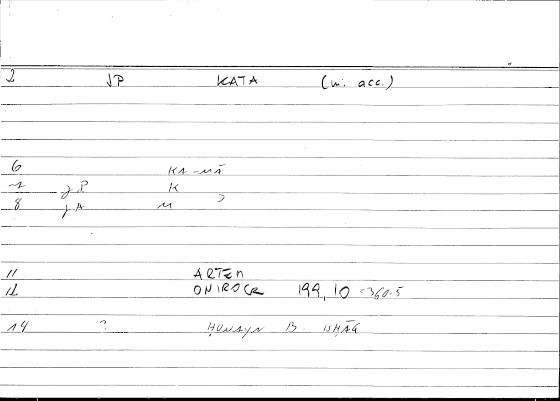 2 JP KATA (w. acc.)
6 KA-MĀ
7 JP K
8 JA M ?
11 ARTEM
12 ONIROCR 199,10 =360.5
14 ? ḤUNAYN B. ISḤĀQ